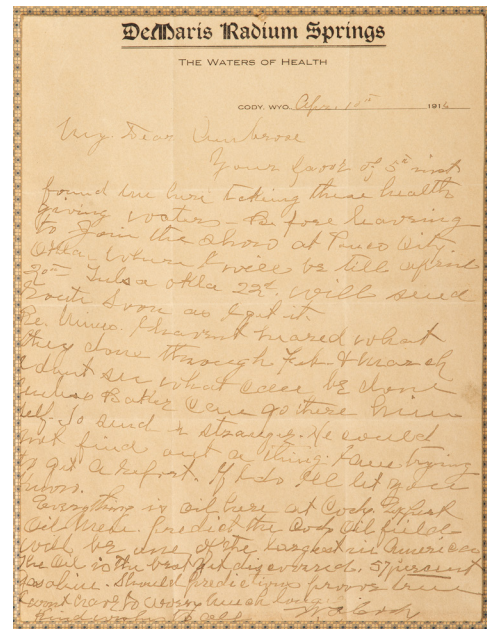 DeMaris Radium Springs
The Waters of Health
CODY, WYO. Apr. 10th 1916
My Dear Ambrose
Your favor of 5th inst
found me here taking these health
giving waters - Before leaving
to Join the Show at Ponca City.
Okla. Where I will be till
20th Tulsa Okla 22d. will send
Route Soon as I get it
Re. Mines. I havent heared what
they done through Feb & March
I dont see what can be done
unless Baker can go there him
self. To send a stranger. He would
not find out a thing. I am trying
to get a report. If I do Ill let you
know.
Everything is oil here at Cody. Expert
Oil Men. Predict the Cody Oil field
will be one of the Largest in America
The Oil is the best yet discovered. 57 percent
gasoline. Should predictions prove true
I wont have to work much longer
W F Cody